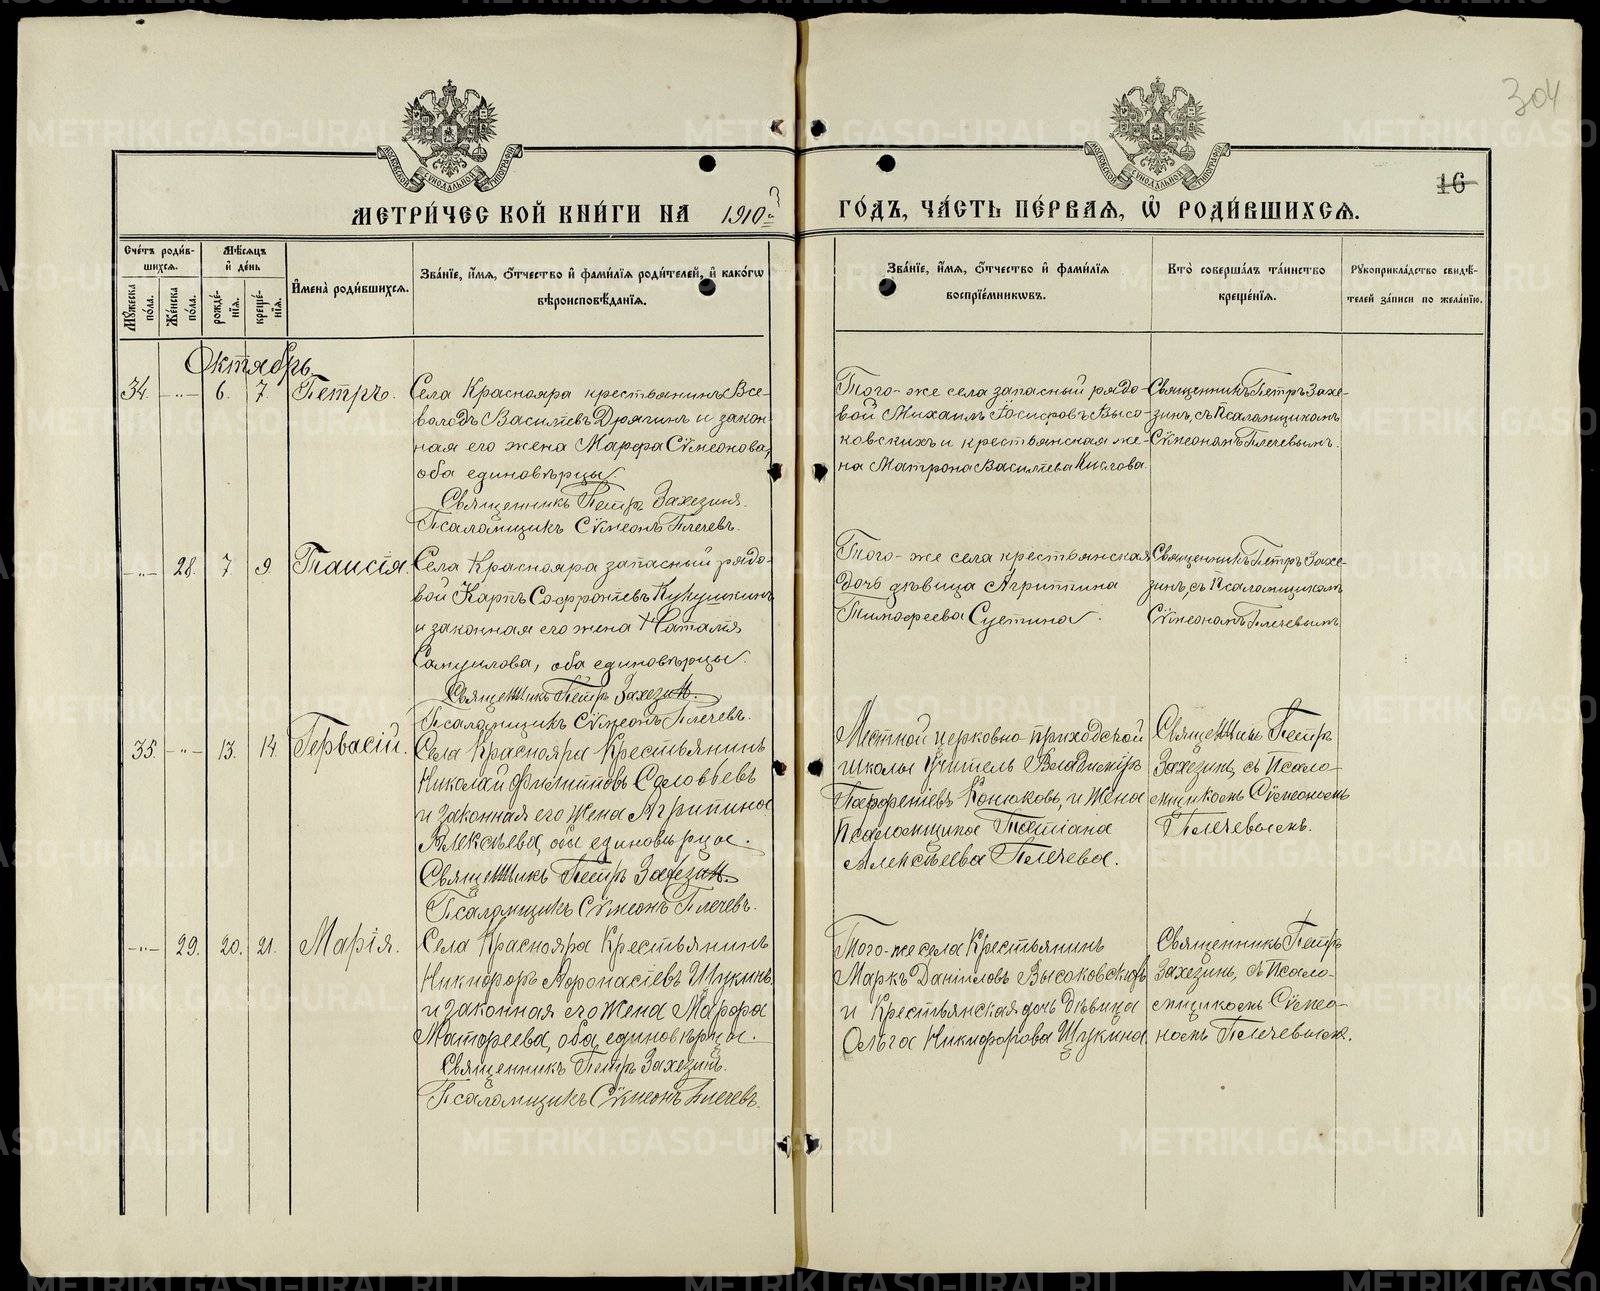 304
16
МЕТРИ́ЧЕСКОЙ КНИ́ГИ НА 1910й
ГО́ДЪ, ЧА́СТЬ ПЕ́РВАЯ, Ѡ РОДИ́ВШИХСЯ.
Сче́тъ роди́в-
шихся.
Мѣ́сяцъ
и҆ де́нь
Мꙋ́жеска по́ла.
Же́нска по́ла.
рожде́нїя.
креще́нїя.
И҆мена̀ роди́вшихся.
Зва́нїе, и҆́мя, ѻ҆́тчество и҆ фами́лїя роди́телей, и҆ како́гѡ
вѣроисповѣ́данїя.
Зва́нїе, и҆́мя, ѻ҆́тчество и҆ фами́лїя
воспрїе́мниковъ.
Кто̀ соверша́лъ та́инство
креще́нїя.
Рꙋкоприкла́дство свидѣ́-
телей за́писи по жела́нїю.
Октябрь
34. -"- 6. 7. Петръ.
Села Краснояра крестьянинъ Все-
володъ Васильевъ Дрягинъ и закон-
ная его жена Марфа Сѵмеонова,
оба единовѣрцы.
Священникъ Петръ Захезинъ.
Псаломщикъ Сѵмеонъ Плечевъ.
Того-же села запасный рядо-
вой Михаилъ Іосифовъ Высо-
ковскихъ и крестьянская же-
на Матрона Васильева Кислова.
Священникъ Петръ Захе-
зинъ, съ Псаломщикомъ
Сѵмеономъ Плечевымъ.
-"- 28. 7. 9. Таисія.
Села Краснояра запасный рядо-
вой Карпъ Софронтьевъ Кукушкинъ
и законная его жена Наталія
Самуилова, оба единовѣрцы.
Священникъ Петръ Захезинъ.
Псаломщикъ Сѵмеонъ Плечевъ.
Того-же села крестьянская
дочь дѣвица Агриппина
Тимофеева Суетина.
Священникъ Петръ Захе-
зинъ, съ Псаломщикомъ
Сѵмеономъ Плечевымъ
35. -"- 13. 14. Гервасій.
Села Краснояра Крестьянинъ
Николай Филипповъ Соловьевъ
и законная его жена Агрипина
Алексѣева, оба единовѣрцы.
Священникъ Петръ Захезинъ.
Псаломщикъ Сѵмеонъ Плечевъ.
Мѣстной церковно-приходской
школы учитель Владиміръ
Парфеніевъ Конюковъ, и Жена
Псаломщика Татіана
Алексѣева Плечева.
Священникъ Петръ
Захезинъ, съ Псало-
мщикомъ Сѵмеономъ
Плечевымъ.
-"- 29. 20. 21. Марія.
Села Краснояра Крестьянинъ
Никифоръ Афонасіевъ Щукинъ
и законная его Жена Марфа
Матфеева, оба единовѣрцы.
Священникъ Петръ Захезинъ.
Псаломщикъ Сѵмеонъ Плечевъ.
Того-же села Крестьянинъ
Маркъ Даниловъ Высоковскихъ
и Крестьянская дочь Дѣвица
Ольга Никифорова Щукина
Священникъ Петръ
Захезинъ, съ Псало-
мщикомъ Сѵмео-
номъ Плечевымъ.
METRIKI.GASO-URAL.RU